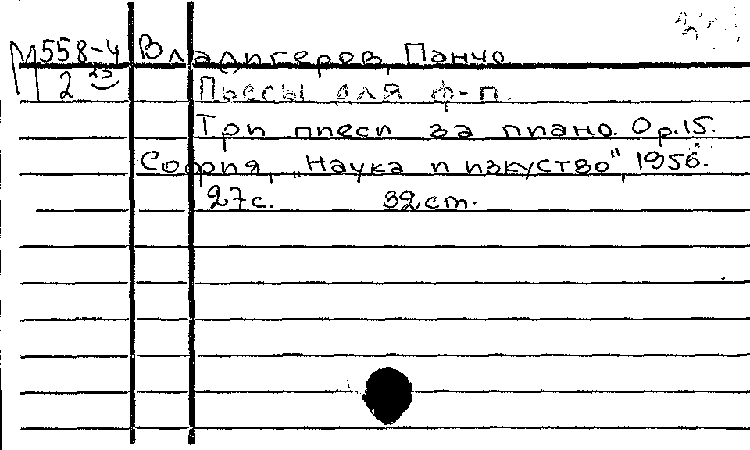 М558-4 Владигеров, Панчо
2 23 Пьесы для ф-п.
Три пиеси за пиано. Ор.15.
София, „Наука и изкуство", 1956.
27с. 32ст.